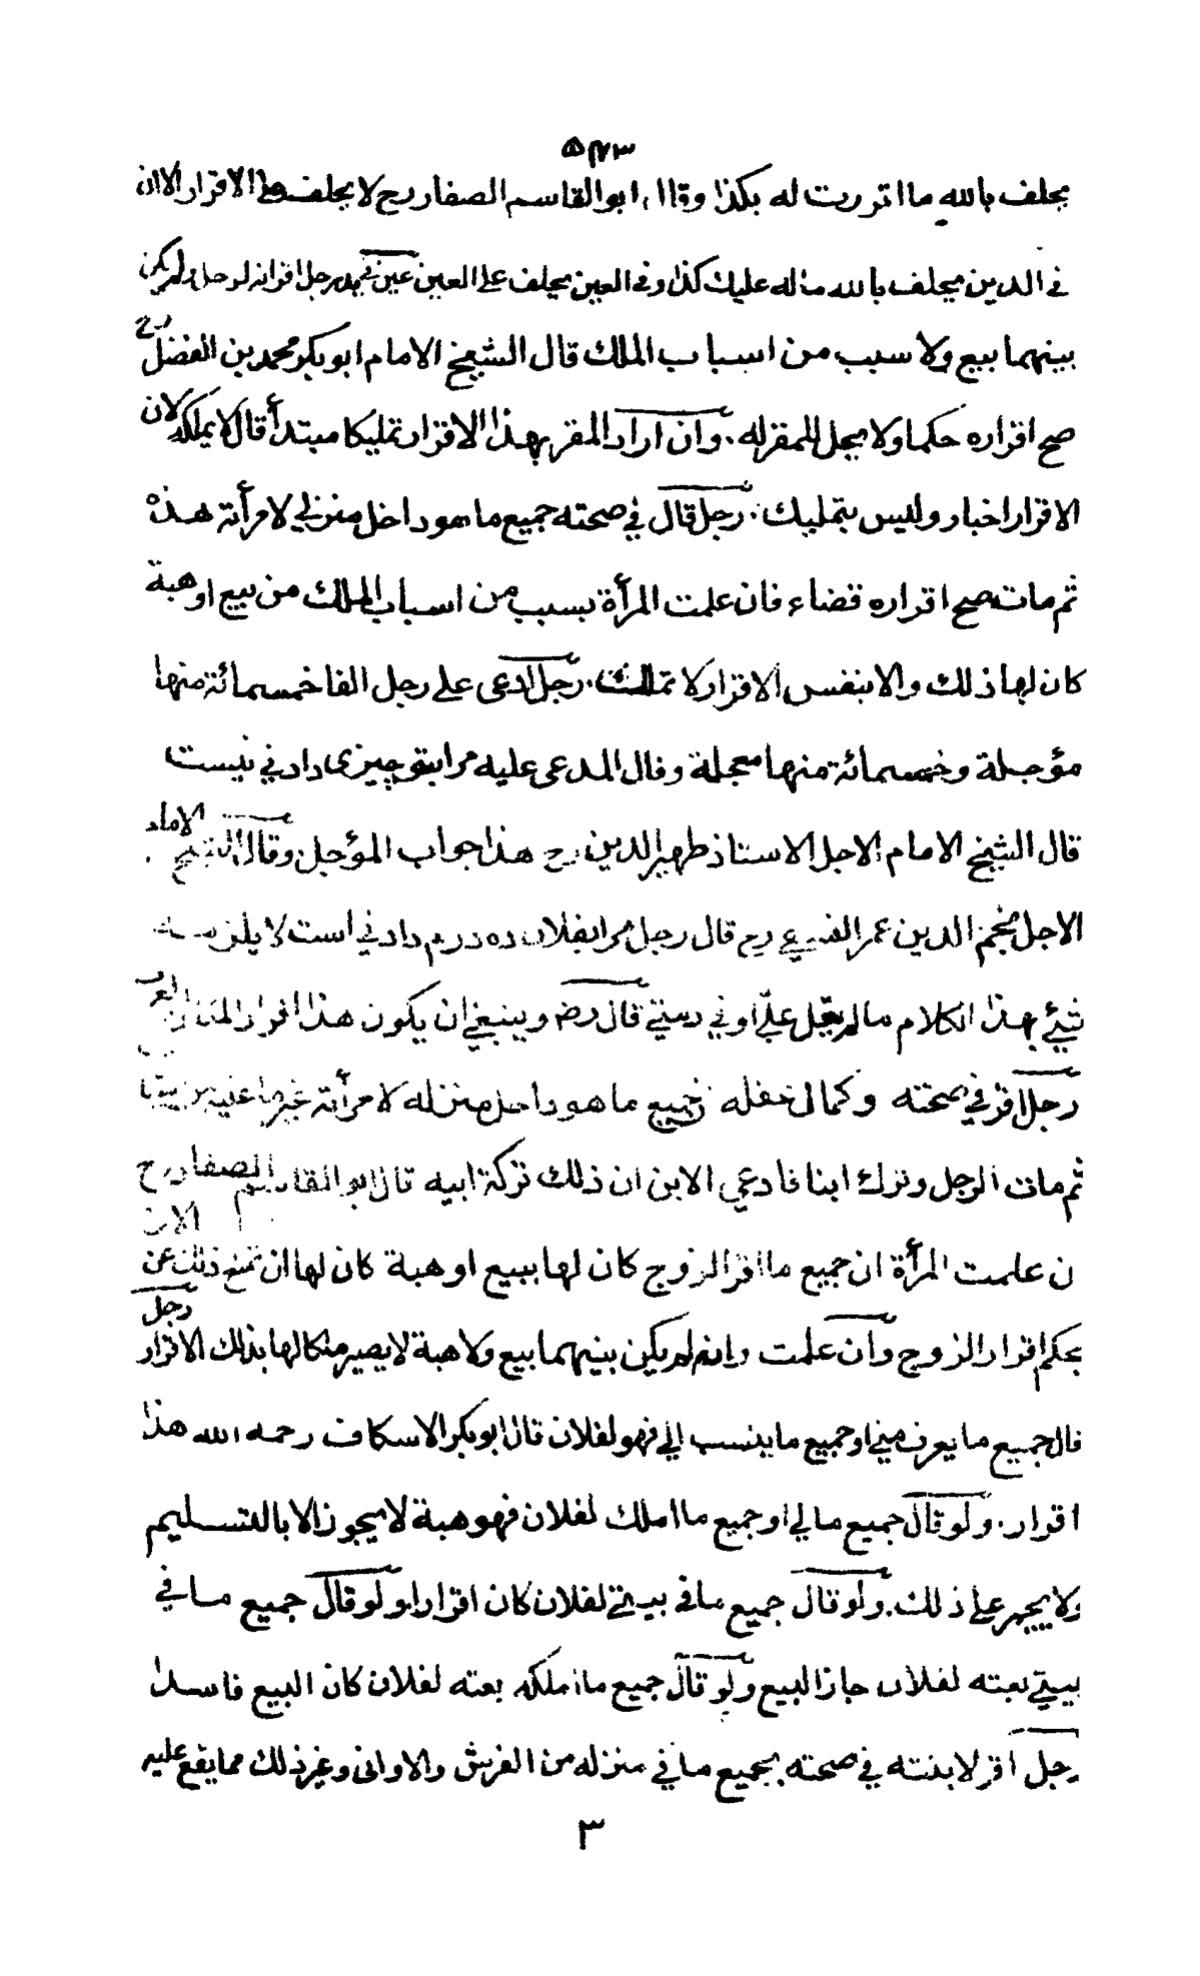 ٥٧٣
يحلف بالله ما اقررت له بكذا وقال ابو القاسم الصفار رح لا يحلف على الاقرار الا ان
في الدين يحلف بالله ماله عليك كذا وفى العين يحلف على العين عين في يد رجل اقر انه لرجل ولم يكن
بينهما بيع ولا سبب من اسباب الملك قال الشيخ الامام ابو بكر محمد بن الفضل رح
صح اقراره حكما ولا يحل للمقر له . وان اراد المقر بهذا الاقرار تمليكا مبتدأ قال لا يملكه لان
الاقرار اخبار وليس بتمليك . رجل قال في صحته جميع ما هو داخل منزلي لامرأته هذه
ثم مات صح اقراره قضاء فان علمت المرأة بسبب من اسباب الملك من بيع او هبة
كان لها ذلك والا بنفس الاقرار لا تملك . رجل ادعى على رجل الفا خمسمائة منها
مؤجلة وخمسمائة منها معجلة وقال المدعى عليه مرا بتو چيزى دادني نيست
قال الشيخ الامام الاجل الاستاذ ظهير الدين رح هذا جواب المؤجل وقال الشيخ الامام
الاجل نجم الدين عمر النسفي رح قال رجل مرا بفلان ده درم دادني است لا يلزمه
شيئ بهذا الكلام ما لم يقل عليّ او في ذمتي قال رض وينبغي ان يكون هذا اقرار العرف
رجل اقر في صحته وكمال عقله بجميع ما هو داخل منزله لامرأته غير ما عليه من ثيابه
ثم مات الرجل وترك ابنا فادعى الابن ان ذلك تركة ابيه قال ابو القاسم الصفار رح
ن علمت المرأة ان جميع ما اقر الزوج كان لها ببيع او هبة كان لها ان تمنع ذلك عن الابن
بحكم اقرار الزوج وان علمت وانه لم يكن بينهما بيع ولا هبة لا يصير ملكا لها بذلك الاقرار رجل
قال جميع ما يعرف مني او جميع ما ينسب الي فهو لفلان قال ابو بكر الاسكاف رحمه الله هذا
اقرار . ولو قال جميع مالي او جميع ما املك لفلان فهو هبة لا يجوز الا بالتسليم
ولا يجبر على ذلك . ولو قال جميع ما في بيتي لفلان كان اقرارا ولو قال جميع ما في
بيتي بعته لفلان جاز البيع ولو قال جميع ما املكه بعته لفلان كان البيع فاسدا
رجل اقر لابنته في صحته بجميع ما في منزله من الفرش والاوانى وغير ذلك مما يقع عليه
٣